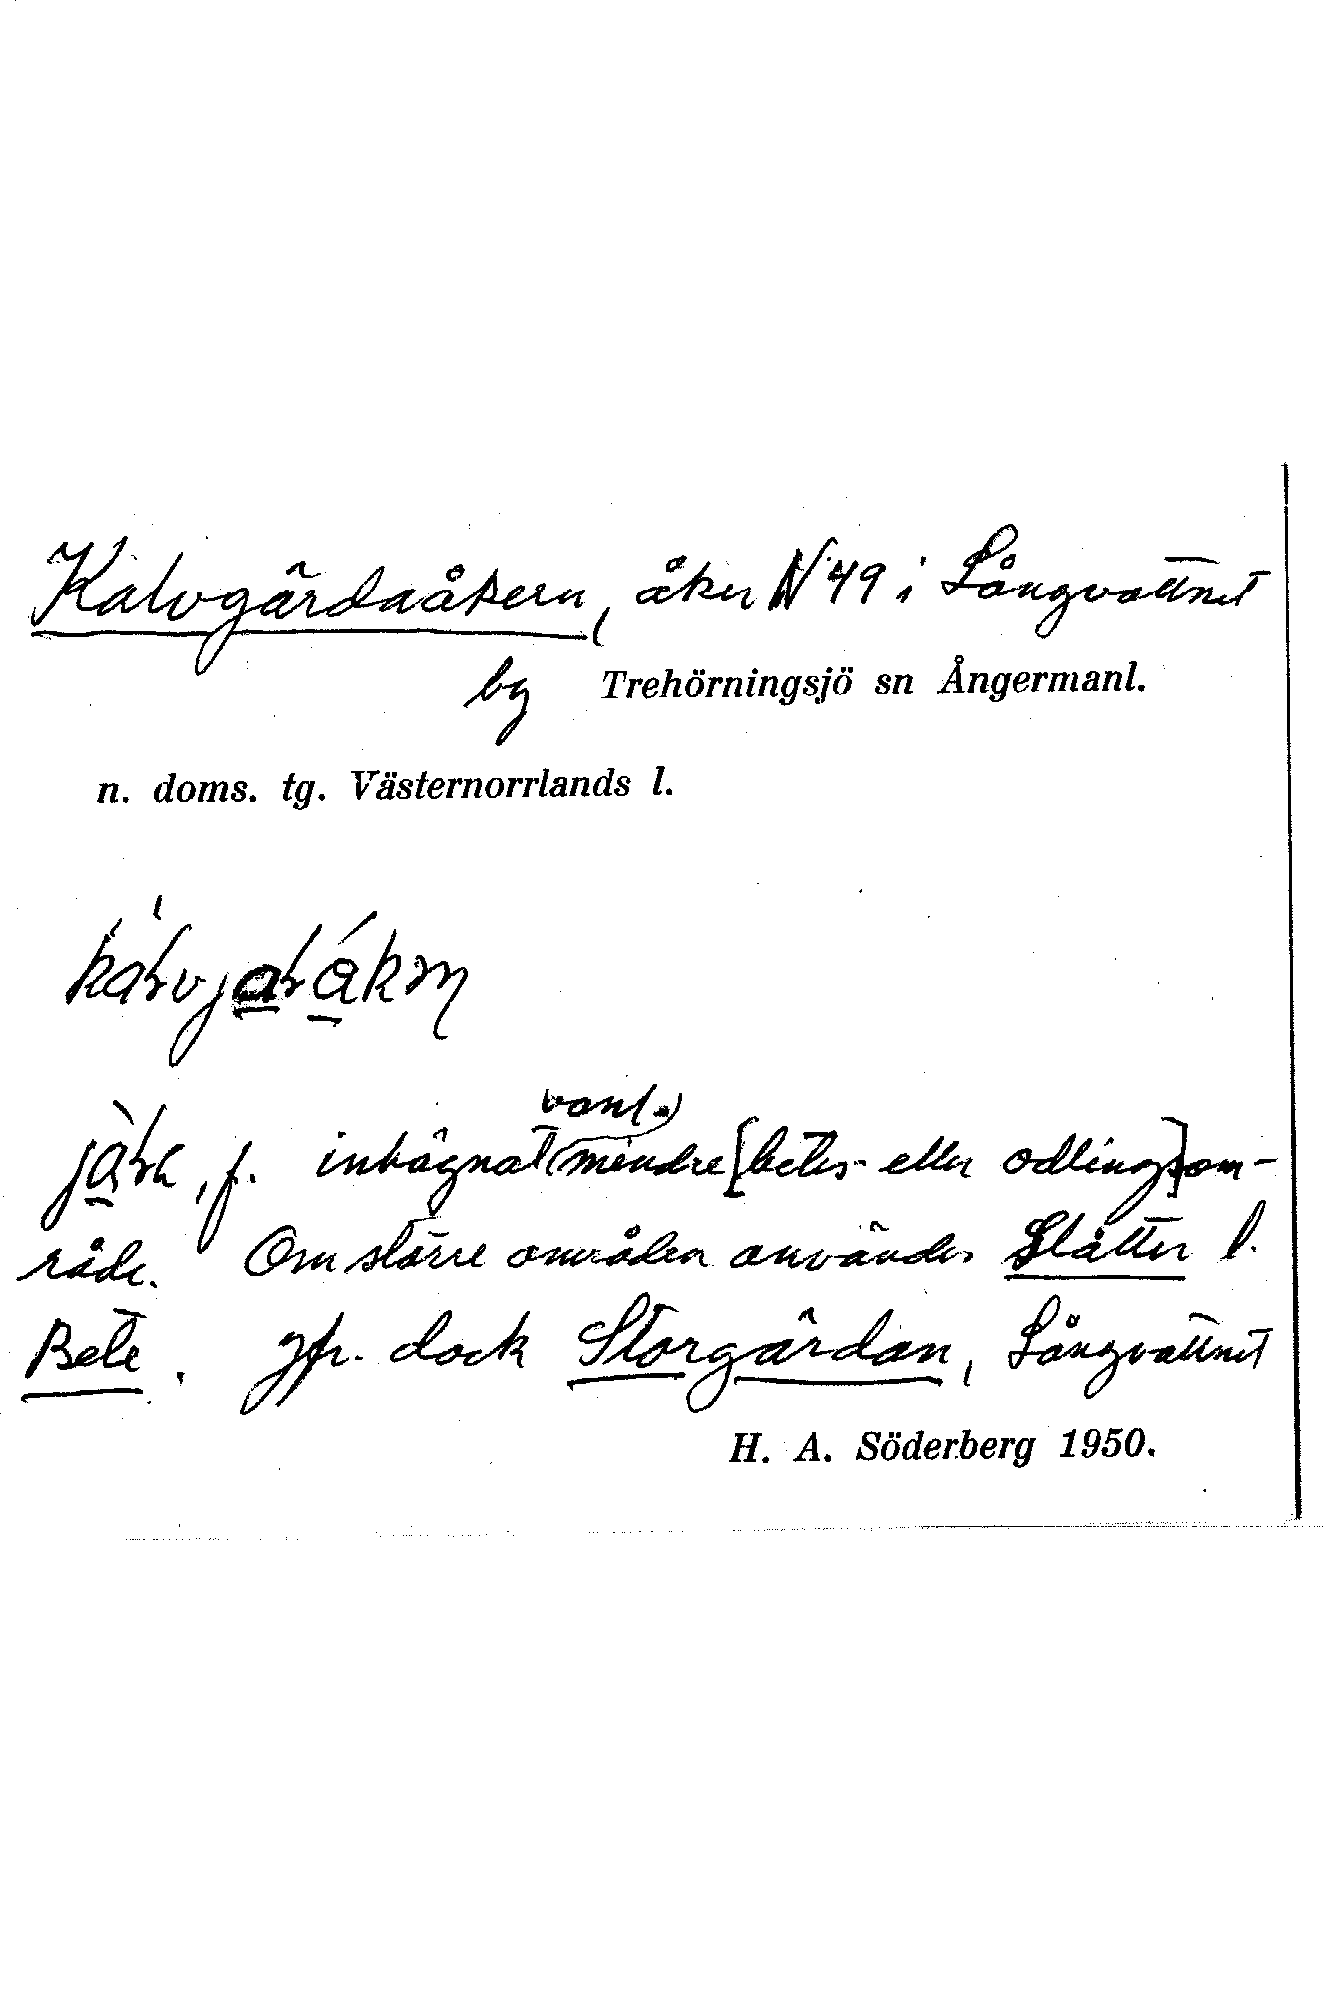 Kalvgärdaåkern, åker N 49 i Långvattnet
by Trehörningsjö sn Ångermanl.
n. doms. tg. Västernorrlands l.
jäɽa, f. inhägnat (vanl.) mindre [betes- eller odlings]om-
råde. Om större områden användes Slåtter l.
Bete. Jfr. dock Storgärdan, Långvattnet
H. A. Söderberg 1950.